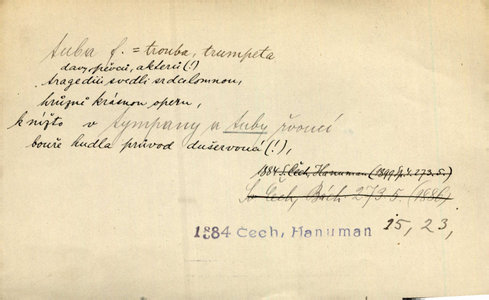 tuba f. = trouba, trumpeta
davy, pěvců, akterů (!)
tragedii svedli srdcelomnou,
hrůzně krásnou operu,
k nížto v tympany a tuby řvoucí
bouře hudla průvod dušervoucí (!),
1884 S. Čech, Hanuman (1899 Sp. 4. 273. 5.)
Sv. Čech, Bách. 273. 5. (1886)
1884 Čech, Hanuman 15, 23,